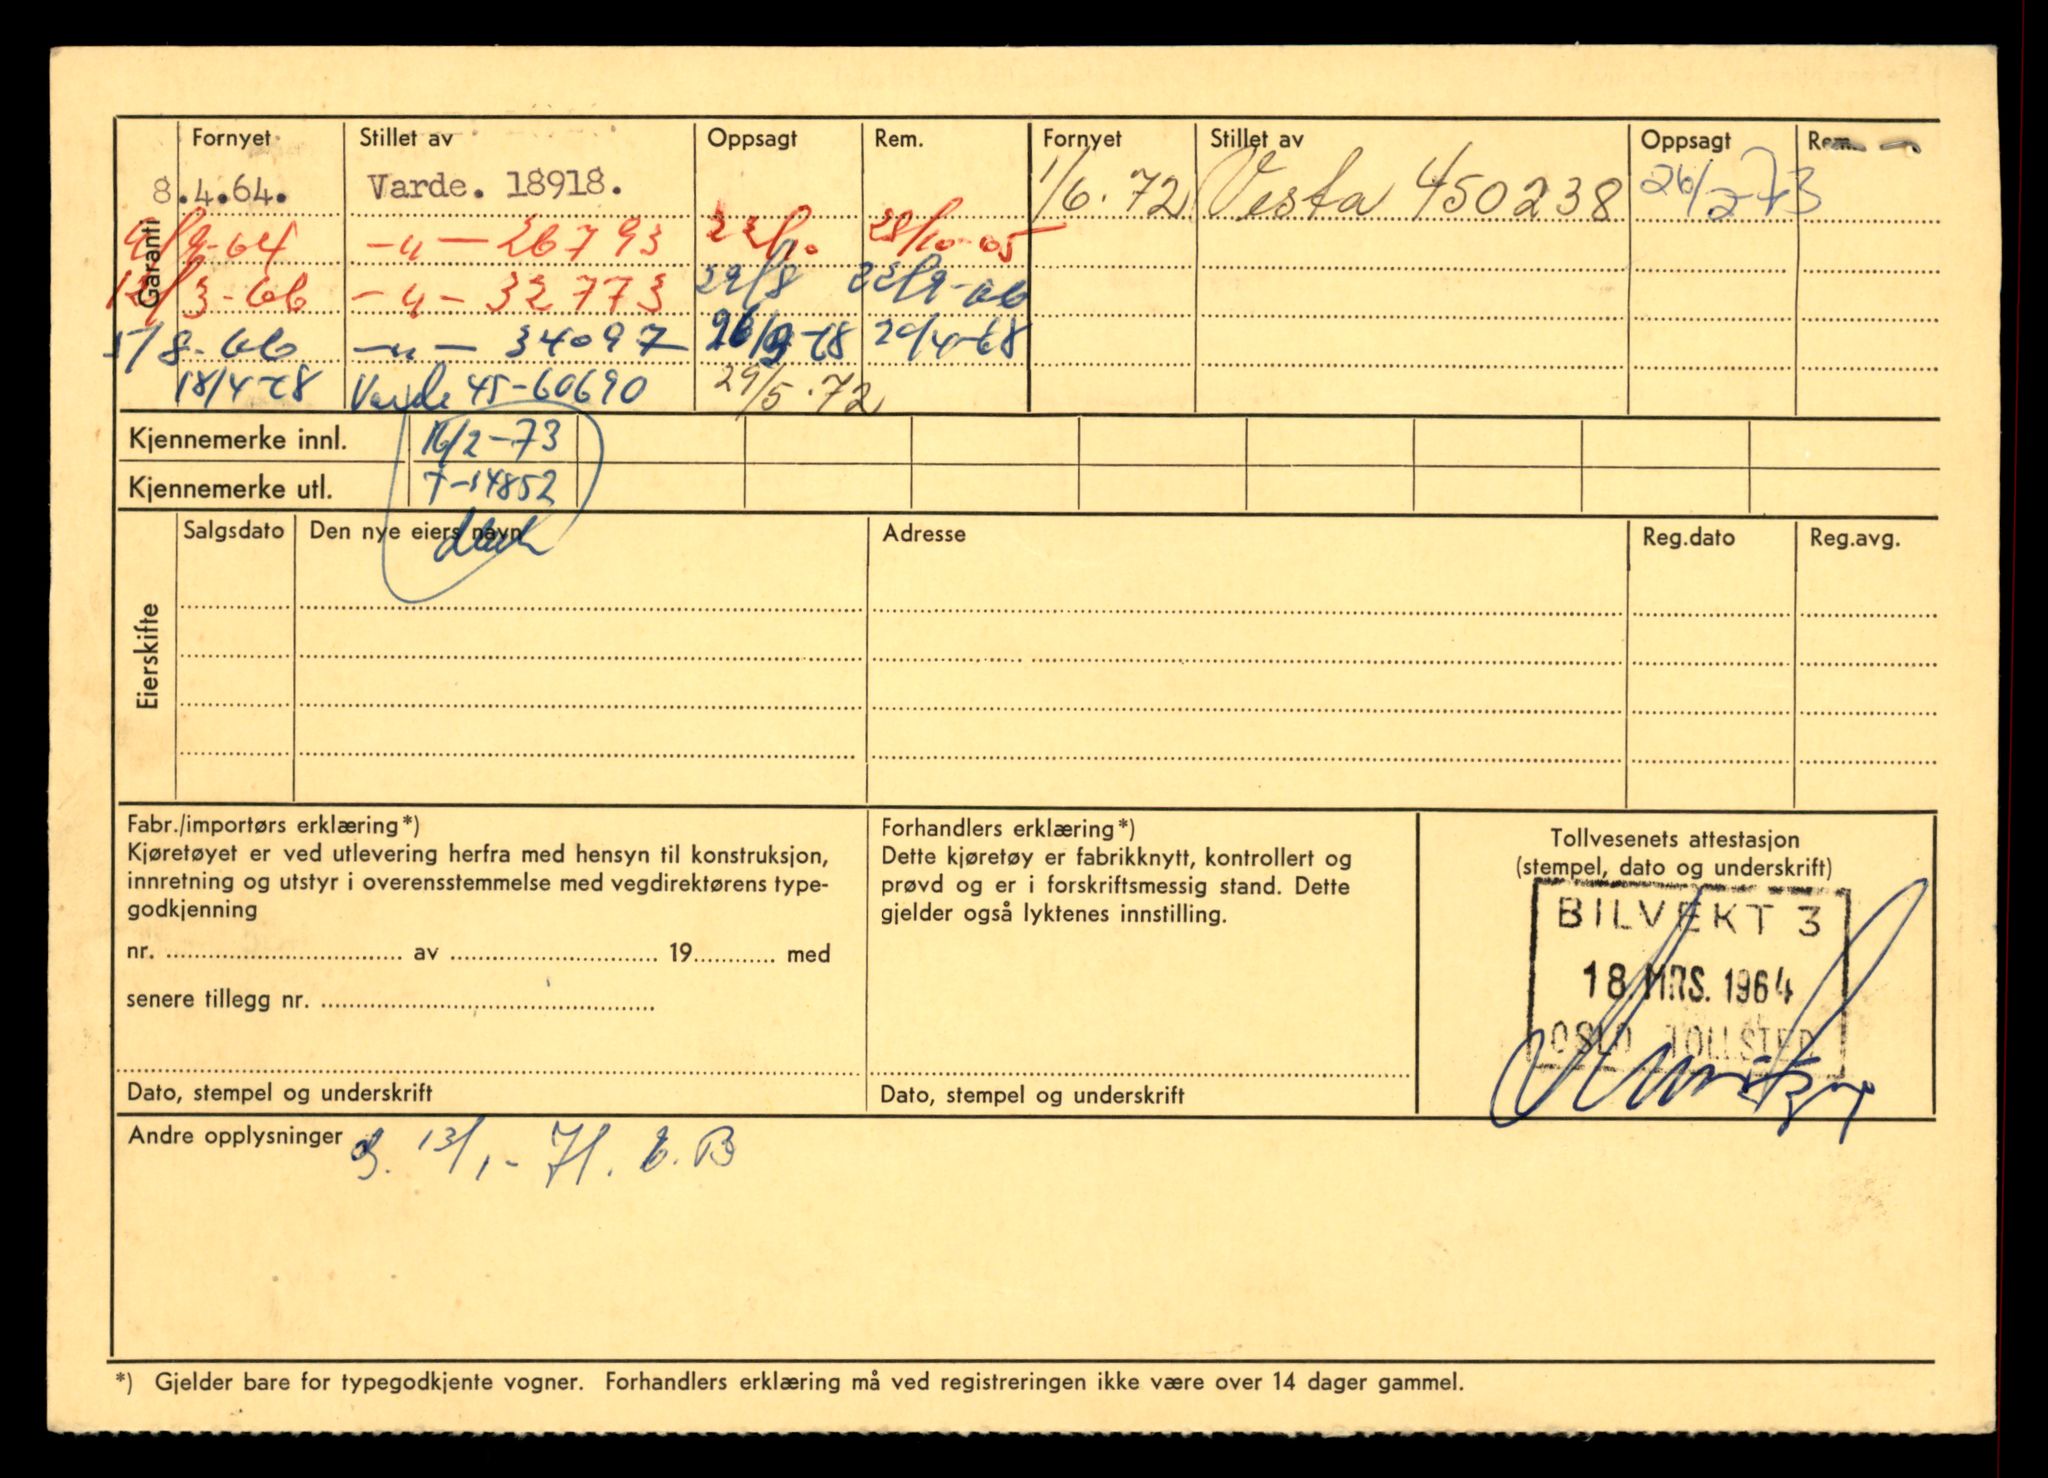 Garanti
Fornyet Stillet av Oppsagt Rem. Fornyet Stillet av Oppsagt Rem.
8.4.64. Varde. 18918. 1/6.72 Vesta 450238 26/2-73
9/9-64 -"- 26793 22/10 28/10-65
12/3-66 -"- 32773 29/8 22/9-66
17/8-66 -"- 34097 26/9-68 20/4-68
18/4-68 Varde 45-60690 29/5.72
Kjennemerke innl. 16/2-73
Kjennemerke utl. 7-14852
Eierskifte
Salgsdato Den nye eiers navn Adresse Reg.dato Reg.avg.
Fabr./importørs erklæring*)
Kjøretøyet er ved utlevering herfra med hensyn til konstruksjon,
innretning og utstyr i overensstemmelse med vegdirektørens type-
godkjenning
nr. ........ av ........ 19........ med
senere tillegg nr. ........
Dato, stempel og underskrift
Forhandlers erklæring*)
Dette kjøretøy er fabrikknytt, kontrollert og
prøvd og er i forskriftsmessig stand. Dette
gjelder også lyktenes innstilling.
Dato, stempel og underskrift
Tollvesenets attestasjon
(stempel, dato og underskrift)
BILVEKT 3
18 MRS. 1964
OSLO TOLLSTED
Andre opplysninger 13/1-71. E.B
*) Gjelder bare for typegodkjente vogner. Forhandlers erklæring må ved registreringen ikke være over 14 dager gammel.